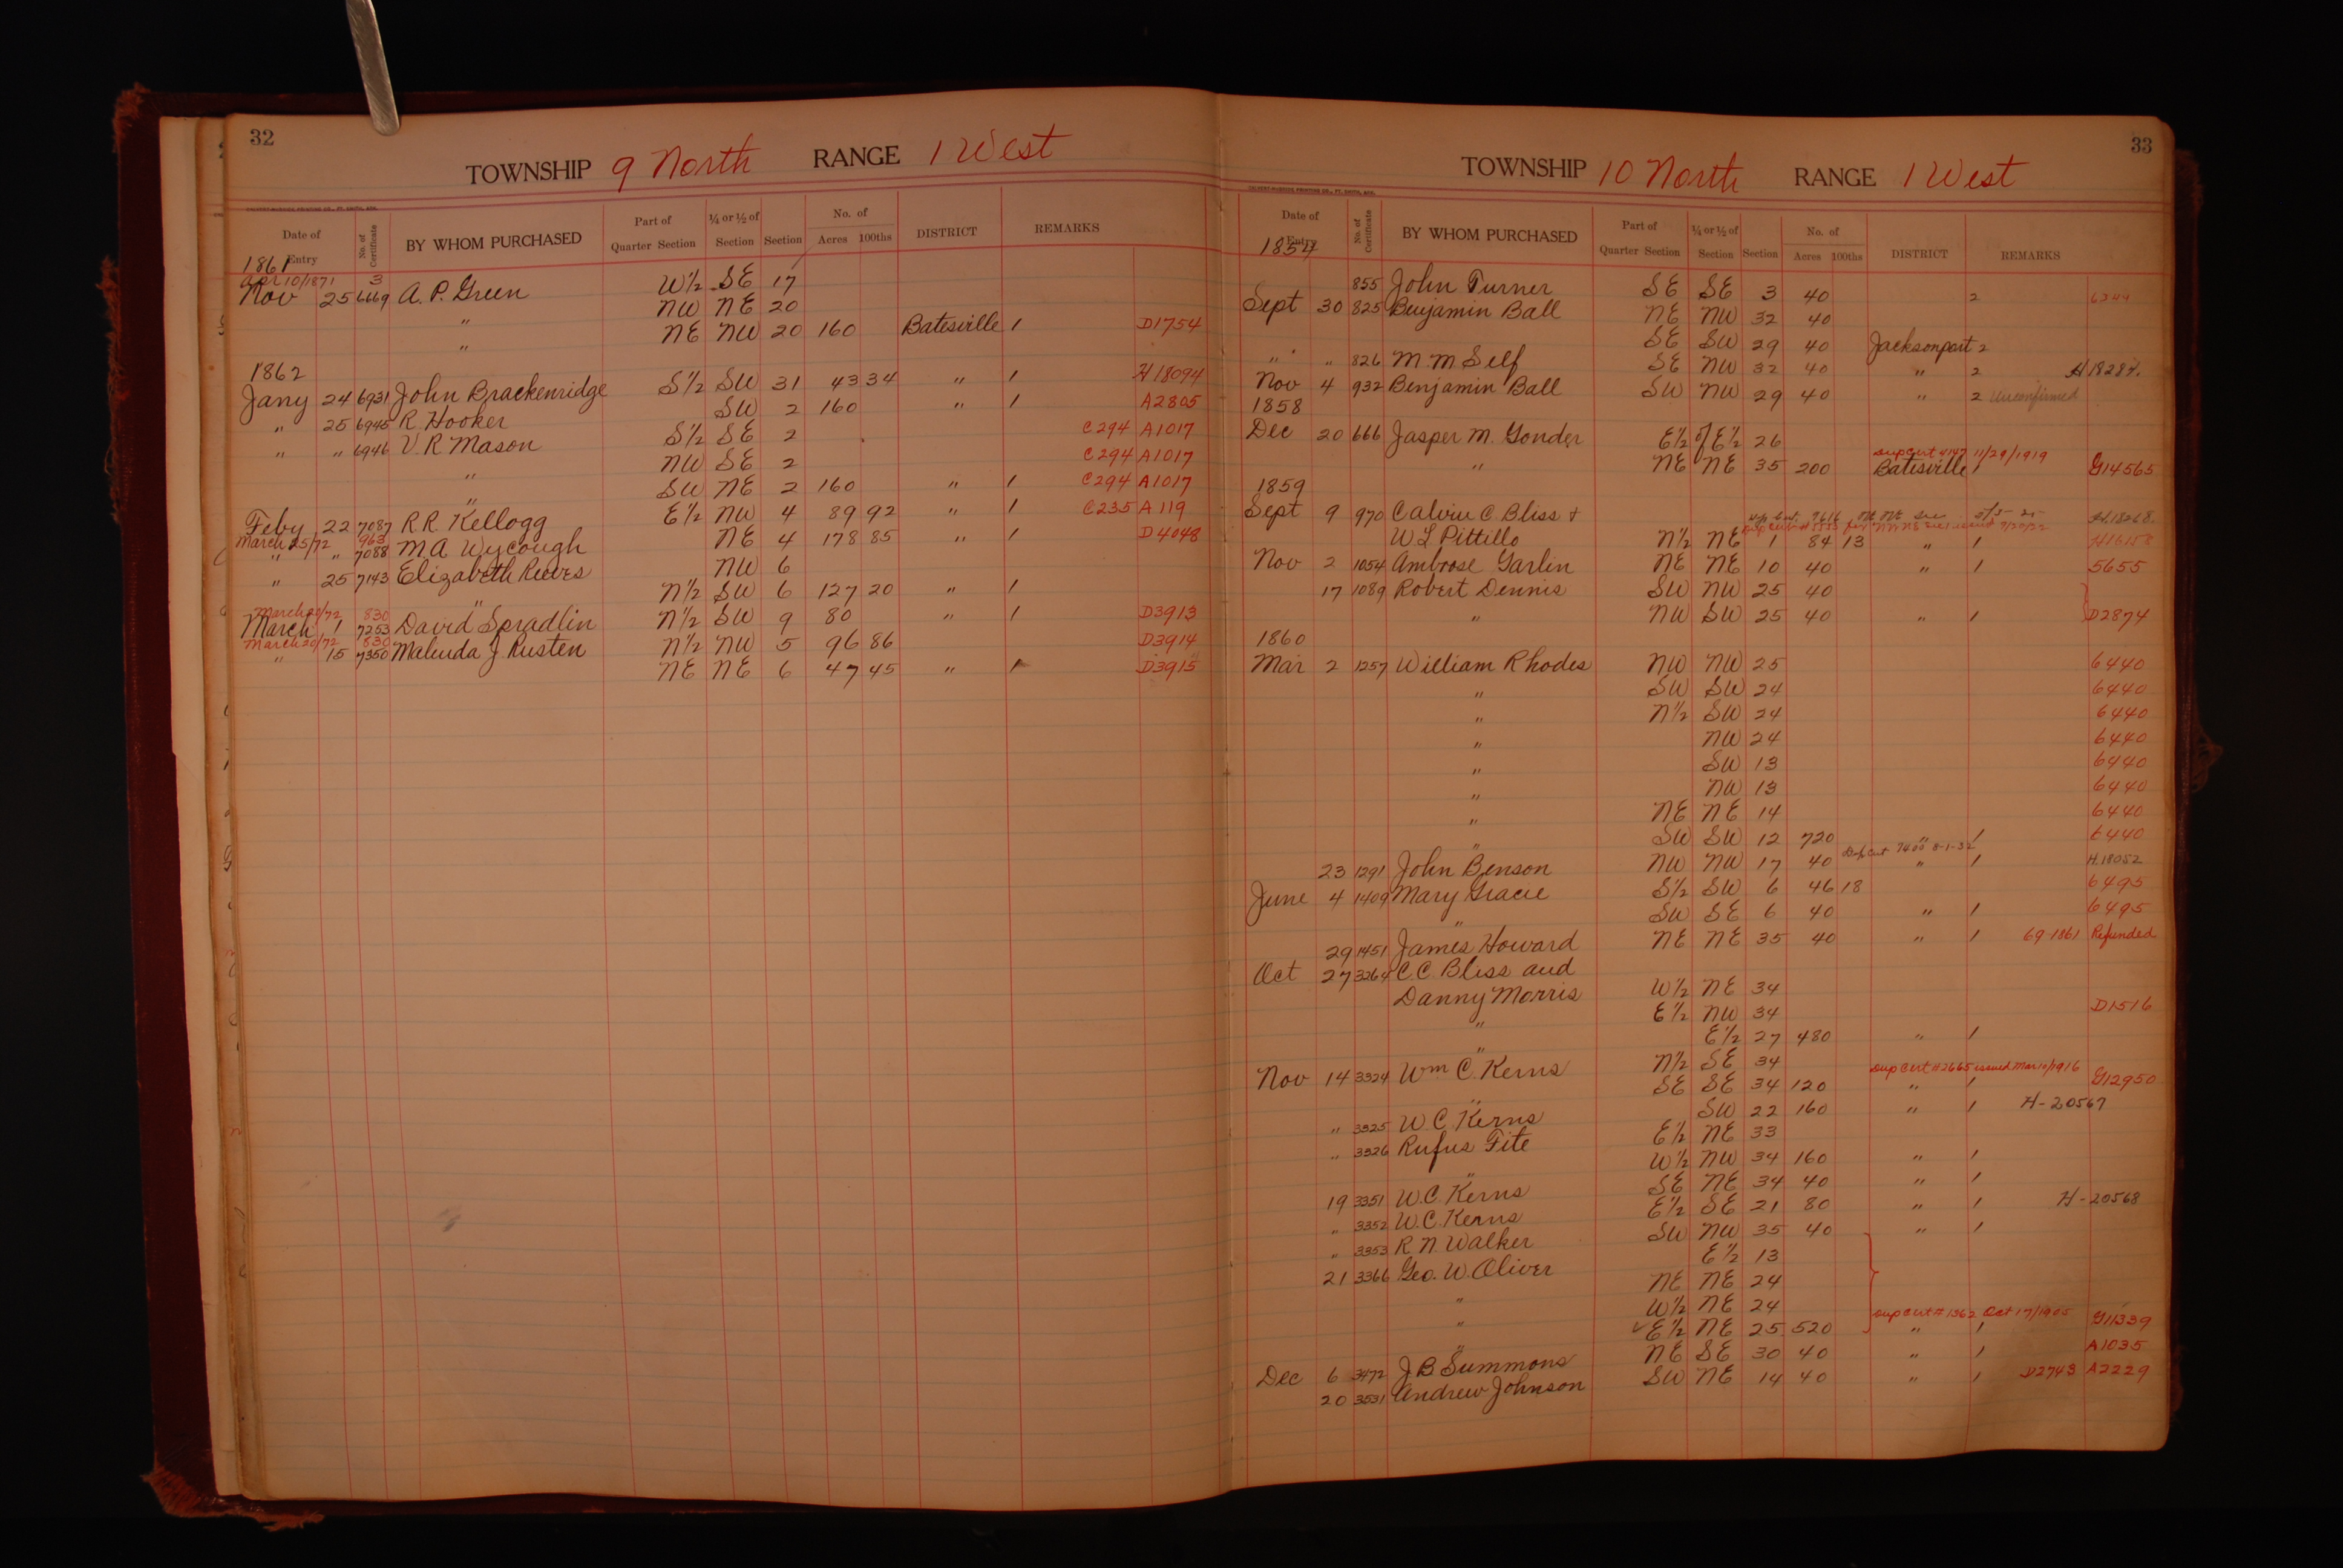 32
TOWNSHIP 9 North RANGE 1 West
Date of Entry No. of Certificate BY WHOM PURCHASED Part of Quarter Section ¼ or ½ of Section Section No. of Acres 100ths DISTRICT REMARKS
1861
Apr 10/1871 3
Nov 25 6669 A. P. Green W½ SE 17
" NW NE 20
" NE NW 20 160 Batesville 1 D1754
1862
Jany 24 6931 John Brackenridge S½ SW 31 43 34 " 1 H18094
" 25 6945 R Hooker SW 2 160 " 1 A2805
" " 6946 V. R. Mason S½ SE 2 C294 A1017
" NW SE 2 C294 A1017
" SW NE 2 160 " 1 C294 A1017
Feby 22 7087 R R Kellogg E½ NW 4 89 92 " 1 C235 A119
March 25/72 963
" " 7088 M. A. Wycough NE 4 178 85 " 1 D4048
" 25 7143 Elizabeth Reeves NW 6
" N½ SW 6 127 20 " 1
March 20/72 830
March 1 7253 David Spradlin N½ SW 9 80 " 1 D3913
March 20/72 830
" 15 7350 Malinda J Rusten N½ NW 5 96 86 D3914
NE NE 6 47 45 " 1 D3915
33
TOWNSHIP 10 North RANGE 1 West
Date of Entry No. of Certificate BY WHOM PURCHASED Part of Quarter Section ¼ or ½ of Section Section No. of Acres 100ths DISTRICT REMARKS
1854
855 John Turner SE SE 3 40 2 6244
Sept 30 825 Benjamin Ball NE NW 32 40
SE SW 29 40 Jacksonport 2
" " 826 M. M Self SE NW 32 40 " 2 H18284.
Nov 4 932 Benjamin Ball SW NW 29 40 " 2 Unconfirmed
1858
Dec 20 666 Jasper M. Gonder E½ of E½ 26
Dup Cert 4147 11/29/1919
" NE NE 35 200 Batesville 1 G14565
1859
Sept 9 970 Calvin C. Bliss & H.18268.
W L Pittillo N½ NE 1 84 13 " 1 H16158
Nov 2 1054 Ambrose Garlin NE NE 10 40 " 1 5655
17 1089 Robert Dennis SW NW 25 40
" NW SW 25 40 " 1 D2874
1860
Mar 2 1257 William Rhodes NW NW 25 6440
" SW SW 24 6440
" N½ SW 24 6440
" NW 24 6440
" SW 13 6440
" NW 13 6440
" NE NE 14 6440
" SW SW 12 720 " 1 6440
Dup Cert 7400 8-1-32
23 1291 John Benson NW NW 17 40 " 1 H.18052
June 4 1409 Mary Gracie S½ SW 6 46 18 6495
" SW SE 6 40 " 1 6495
29 1451 James Howard NE NE 35 40 " 1 69 1861 Refunded
Oct 27 3264 C C Bliss and
Danny Morris W½ NE 34
" E½ NW 34 D1516
" E½ 27 480 " 1
Nov 14 3324 Wm C. Kerns N½ SE 34
Dup Cert #2665 issued Mar 10/1916
" SE SE 34 120 " 1 G12950
" 3325 W C Kerns SW 22 160 " 1 H-20567
" 3326 Rufus Fite E½ NE 33
" W½ NW 34 160 " 1
19 3351 W. C. Kerns SE NE 34 40 " 1
" 3352 W. C. Kerns E½ SE 21 80 " 1 H-20568
" 3353 R N. Walker SW NW 35 40 " 1
21 3366 Geo. W. Oliver E½ 13
" NE NE 24
" W½ NE 24
Dup Cert #1362 Oct 17/1905
" E½ NE 25 520 " 1 G11339
Dec 6 3472 J B Summons NE SE 30 40 " 1 A1035
20 3531 Andrew Johnson SW NE 14 40 " 1 D2743 A2229